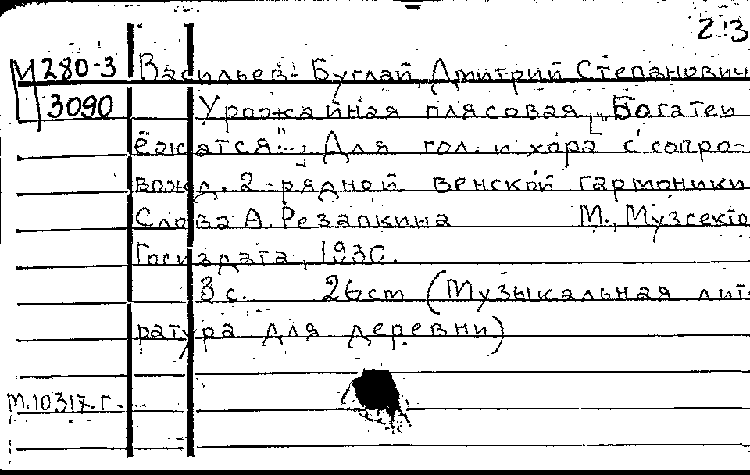 213
М 280-3 Васильев-Буглай, Дмитрий Степанович
3090 Урожайная плясовая „Богатеи
ежатся": Для гол. и хора с сопро-
вожд. 2-рядной венской гармоники
Слова А. Резапкина М., Музсекто
Госиздата, 1930.
8 с. 26cm (Музыкальная лите
ратура для деревни)
М.10317.г.